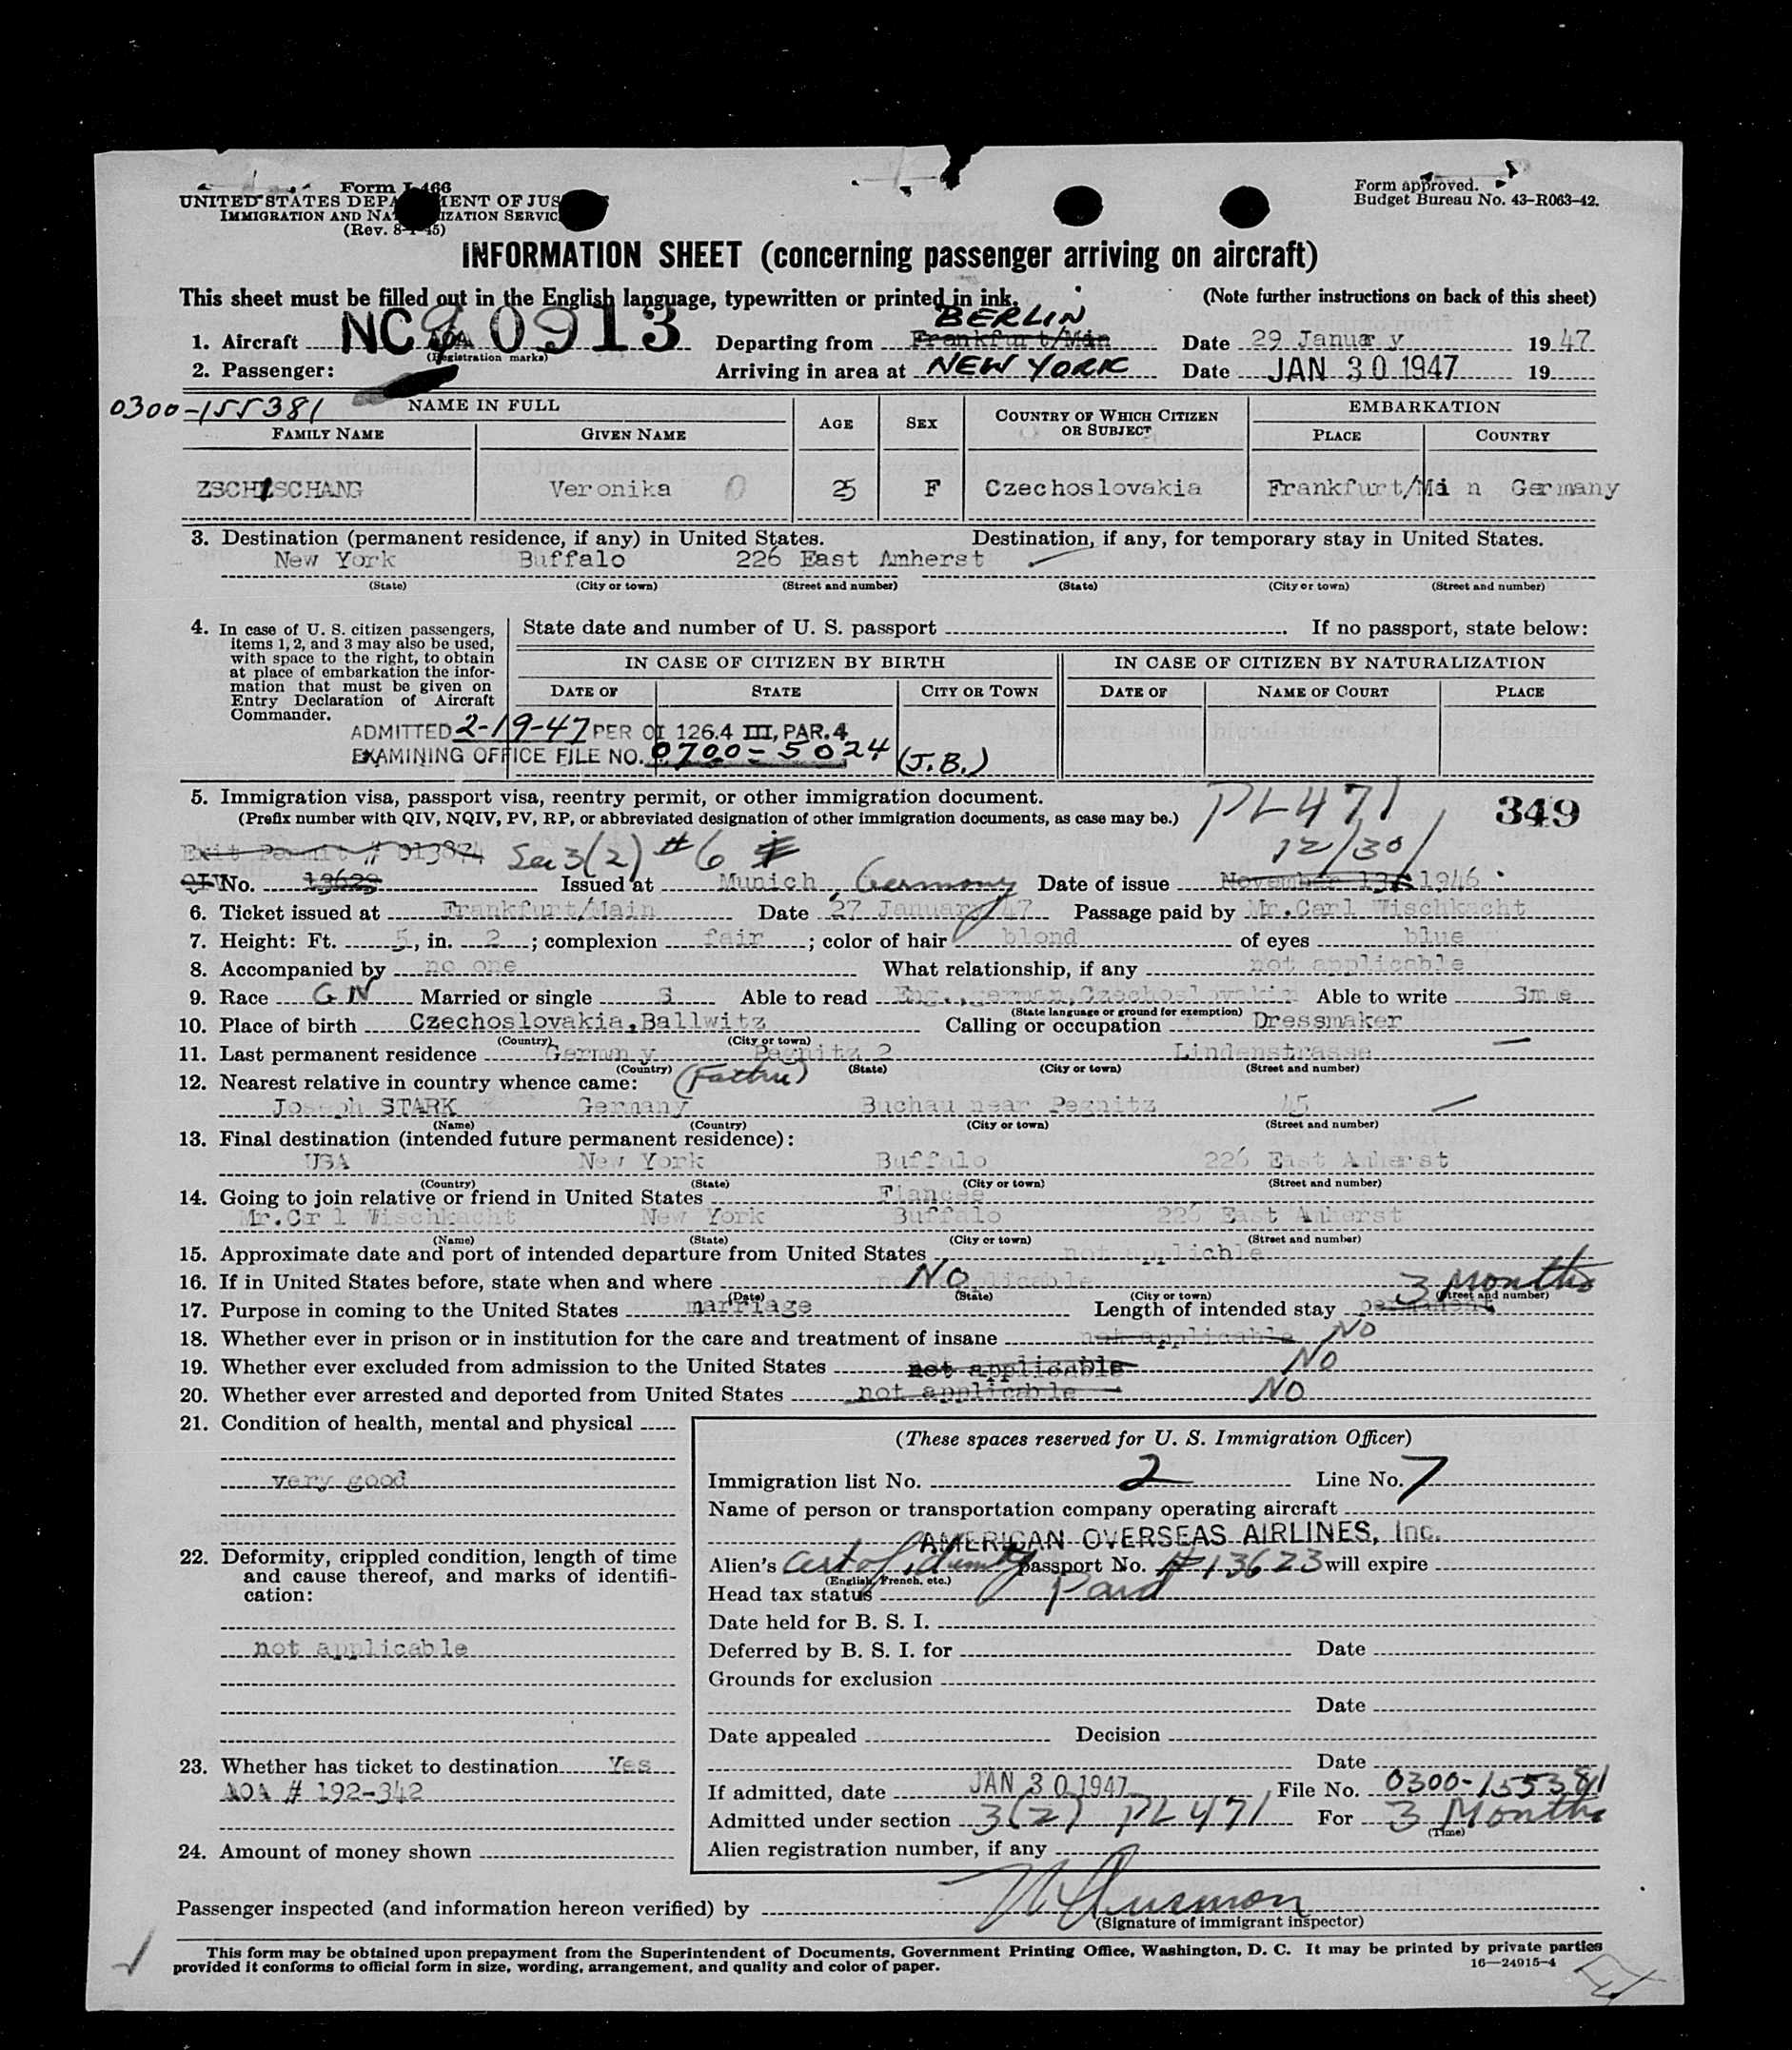 Form I-466
UNITED STATES DEPARTMENT OF JUSTICE
IMMIGRATION AND NATURALIZATION SERVICE
(Rev. 8-1-45)
Form approved.
Budget Bureau No. 43-R063-42.
INFORMATION SHEET (concerning passenger arriving on aircraft)
This sheet must be filled out in the English language, typewritten or printed in ink.
(Note further instructions on back of this sheet)
BERLIN
1. Aircraft NC 90913 Departing from Frankfurt/Main Date 29 January 1947
(Registration marks)
2. Passenger: Arriving in area at NEW YORK Date JAN 30 1947 19
0300-155381
NAME IN FULL AGE SEX COUNTRY OF WHICH CITIZEN OR SUBJECT EMBARKATION
FAMILY NAME GIVEN NAME PLACE COUNTRY
ZSCHISCHANG Veronika 0 25 F Czechoslovakia Frankfurt/Main Germany
3. Destination (permanent residence, if any) in United States. Destination, if any, for temporary stay in United States.
New York Buffalo 226 East Amherst
(State) (City or town) (Street and number) (State) (City or town) (Street and number)
4. In case of U. S. citizen passengers, items 1, 2, and 3 may also be used, with space to the right, to obtain at place of embarkation the information that must be given on Entry Declaration of Aircraft Commander.
State date and number of U. S. passport . If no passport, state below:
IN CASE OF CITIZEN BY BIRTH IN CASE OF CITIZEN BY NATURALIZATION
DATE OF STATE CITY OR TOWN DATE OF NAME OF COURT PLACE
ADMITTED 2-19-47 PER OI 126.4 III, PAR. 4
EXAMINING OFFICE FILE NO. 0700-5024 (J.B.)
5. Immigration visa, passport visa, reentry permit, or other immigration document. PL 471 349
(Prefix number with QIV, NQIV, PV, RP, or abbreviated designation of other immigration documents, as case may be.)
Exit Permit # 013874 Sec 3(2) #6 12/30/
QIV No. 13623 Issued at Munich, Germany Date of issue November 13 1946
6. Ticket issued at Frankfurt/Main Date 27 January 47 Passage paid by Mr. Carl Wischkacht
7. Height: Ft. 5, in. 2; complexion fair; color of hair blond of eyes blue
8. Accompanied by no one What relationship, if any not applicable
9. Race GN Married or single S Able to read Eng., german, Czechoslovakin Able to write Sme
(State language or ground for exemption)
10. Place of birth Czechoslovakia, Ballwitz Calling or occupation Dressmaker
(Country) (City or town)
11. Last permanent residence Germany Pegnitz 2 Lindenstrasse
(Country) (State) (City or town) (Street and number)
12. Nearest relative in country whence came: (Father)
Joseph STARK Germany Buchau near Pegnitz 45
(Name) (Country) (City or town) (Street and number)
13. Final destination (intended future permanent residence):
USA New York Buffalo 226 East Amherst
(Country) (State) (City or town) (Street and number)
14. Going to join relative or friend in United States Fiancee
Mr. Carl Wischkacht New York Buffalo 226 East Amherst
(Name) (State) (City or town) (Street and number)
15. Approximate date and port of intended departure from United States not applichle
16. If in United States before, state when and where not applicable NO
(Date) (State) (City or town) (Street and number)
3 Months
17. Purpose in coming to the United States marriage Length of intended stay permanent
18. Whether ever in prison or in institution for the care and treatment of insane not applicable NO
19. Whether ever excluded from admission to the United States not applicable NO
20. Whether ever arrested and deported from United States not applicable NO
21. Condition of health, mental and physical
very good
22. Deformity, crippled condition, length of time and cause thereof, and marks of identification:
not applicable
23. Whether has ticket to destination Yes
AOA # 192-342
24. Amount of money shown
(These spaces reserved for U. S. Immigration Officer)
Immigration list No. 2 Line No. 7
Name of person or transportation company operating aircraft
AMERICAN OVERSEAS AIRLINES, Inc.
Alien's Cert of identity passport No. #13623 will expire
(English, French, etc.)
Head tax status Paid
Date held for B. S. I.
Deferred by B. S. I. for Date
Grounds for exclusion
Date
Date appealed Decision
Date
If admitted, date JAN 30 1947 File No. 0300-155381
Admitted under section 3(2) PL 471 For 3 Months
(Time)
Alien registration number, if any
Passenger inspected (and information hereon verified) by
(Signature of immigrant inspector)
This form may be obtained upon prepayment from the Superintendent of Documents, Government Printing Office, Washington, D. C. It may be printed by private parties
provided it conforms to official form in size, wording, arrangement, and quality and color of paper.
16—24915-4